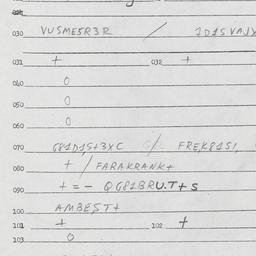 030 VUSME5R3R / JD1SVAJX
031 + 032 +
040 0
050 0
060 0
070 G81D1,S+3XC / FREK81S1,
080 + / FARAKRANK+
090 + = - QG81BRU.T+S
100 AMBEST+
101 + 102 +
103 0